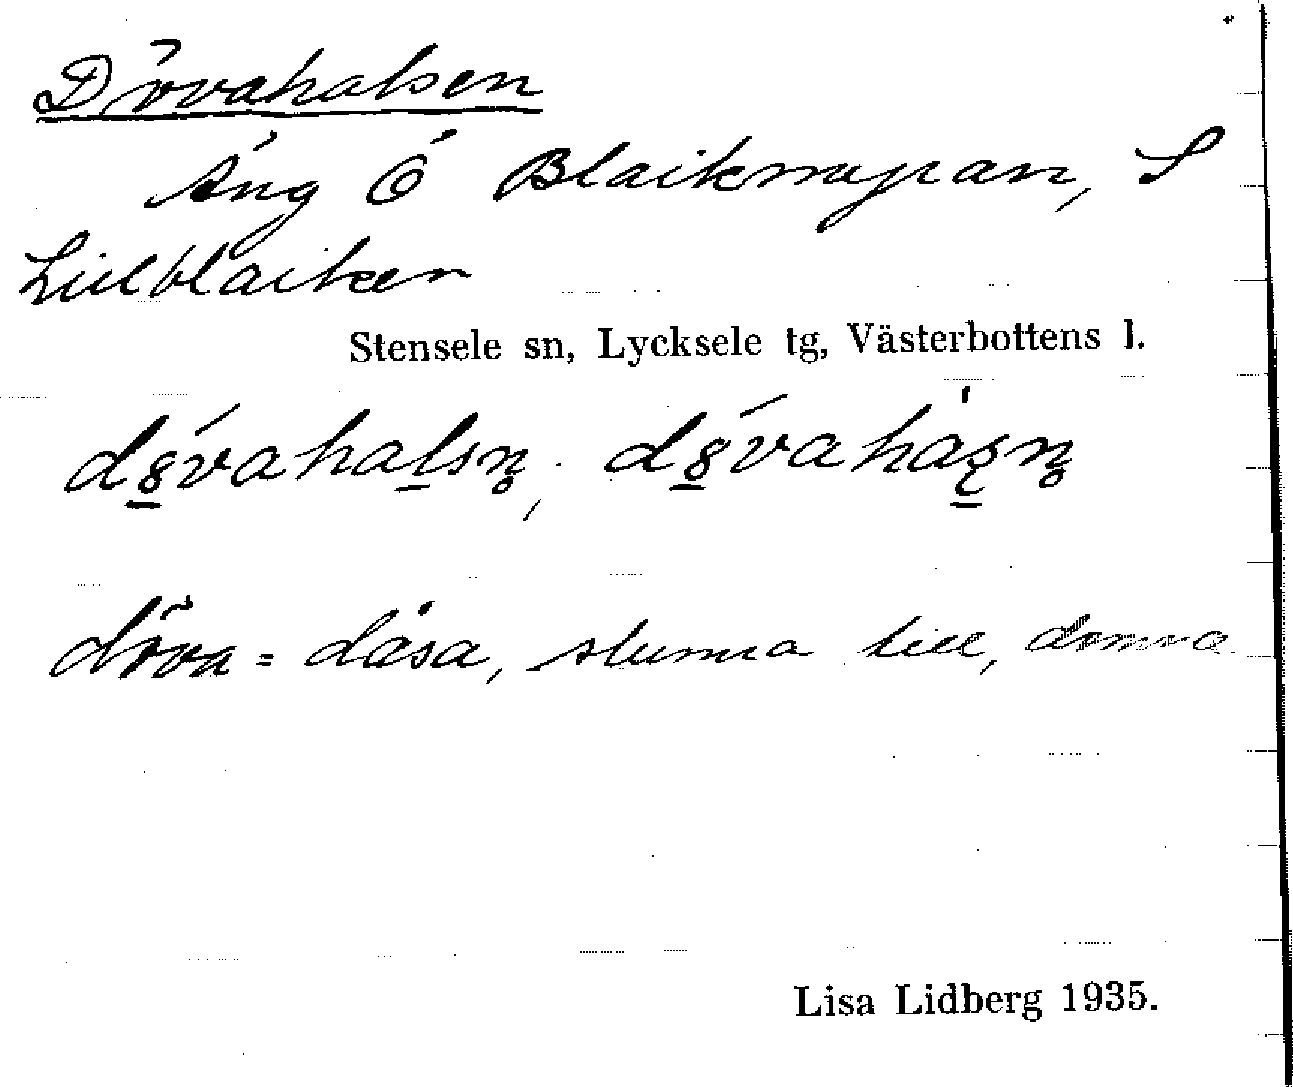 Dövahalsen
Äng Ö Blaiknuppan, S
Lillblaiken
Stensele sn, Lycksele tg, Västerbottens l.
döva = dåsa, slumra till, domna
Lisa Lidberg 1935.